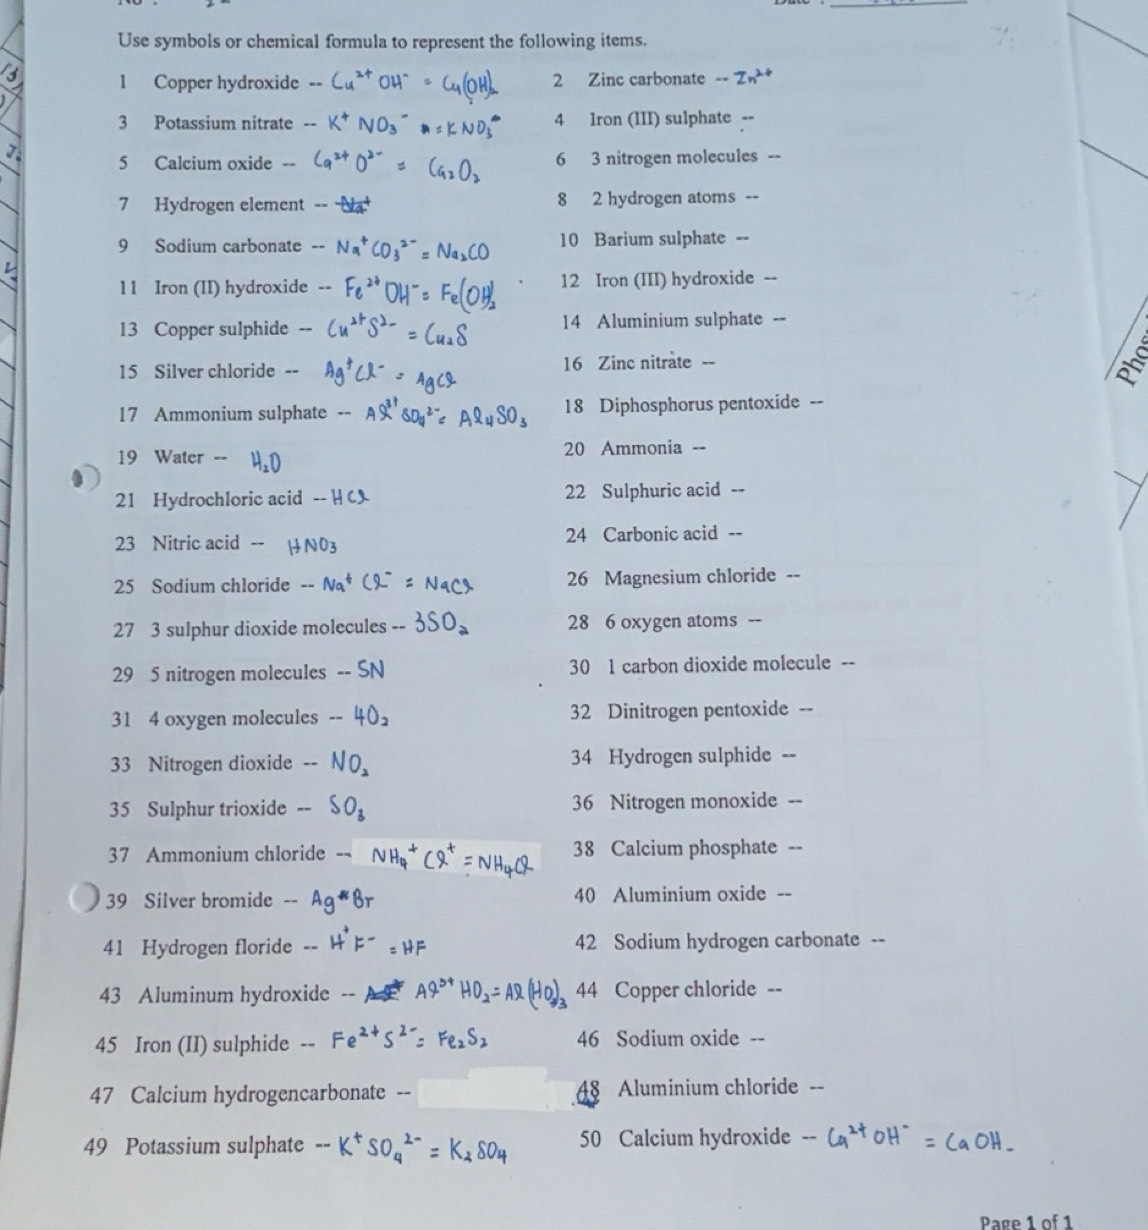 Use symbols or chemical formula to represent the following items.
1 Copper hydroxide -- Cu²⁺ OH⁻ = Cu(OH)₂
2 Zinc carbonate -- Zn²⁺
3 Potassium nitrate -- K⁺ NO₃⁻ = KNO₃
4 Iron (III) sulphate --
5 Calcium oxide -- Ca²⁺ O²⁻ = Ca₂O₂
6 3 nitrogen molecules --
7 Hydrogen element --
8 2 hydrogen atoms --
9 Sodium carbonate -- Na⁺ CO₃²⁻ = Na₂CO
10 Barium sulphate --
11 Iron (II) hydroxide -- Fe²⁺ OH⁻ = Fe(OH)₂
12 Iron (III) hydroxide --
13 Copper sulphide -- Cu²⁺ S²⁻ = Cu₂S
14 Aluminium sulphate --
15 Silver chloride -- Ag⁺ Cl⁻ = AgCl
16 Zinc nitrate --
17 Ammonium sulphate -- Al³⁺ SO₄²⁻ = Al₄SO₃
18 Diphosphorus pentoxide --
19 Water -- H₂O
20 Ammonia --
21 Hydrochloric acid -- HCl
22 Sulphuric acid --
23 Nitric acid -- HNO₃
24 Carbonic acid --
25 Sodium chloride -- Na⁺ Cl⁻ = NaCl
26 Magnesium chloride --
27 3 sulphur dioxide molecules -- 3SO₂
28 6 oxygen atoms --
29 5 nitrogen molecules -- 5N
30 1 carbon dioxide molecule --
31 4 oxygen molecules -- 4O₂
32 Dinitrogen pentoxide --
33 Nitrogen dioxide -- NO₂
34 Hydrogen sulphide --
35 Sulphur trioxide -- SO₃
36 Nitrogen monoxide --
37 Ammonium chloride -- NH₄⁺ Cl⁺ = NH₄Cl
38 Calcium phosphate --
39 Silver bromide -- Ag Br
40 Aluminium oxide --
41 Hydrogen floride -- H⁺ F⁻ = HF
42 Sodium hydrogen carbonate --
43 Aluminum hydroxide -- Al³⁺ HO₂ = Al(HO)₃
44 Copper chloride --
45 Iron (II) sulphide -- Fe²⁺ S²⁻ = Fe₂S₂
46 Sodium oxide --
47 Calcium hydrogencarbonate --
48 Aluminium chloride --
49 Potassium sulphate -- K⁺ SO₄²⁻ = K₂SO₄
50 Calcium hydroxide -- Ca²⁺ OH⁻ = CaOH-
Page 1 of 1